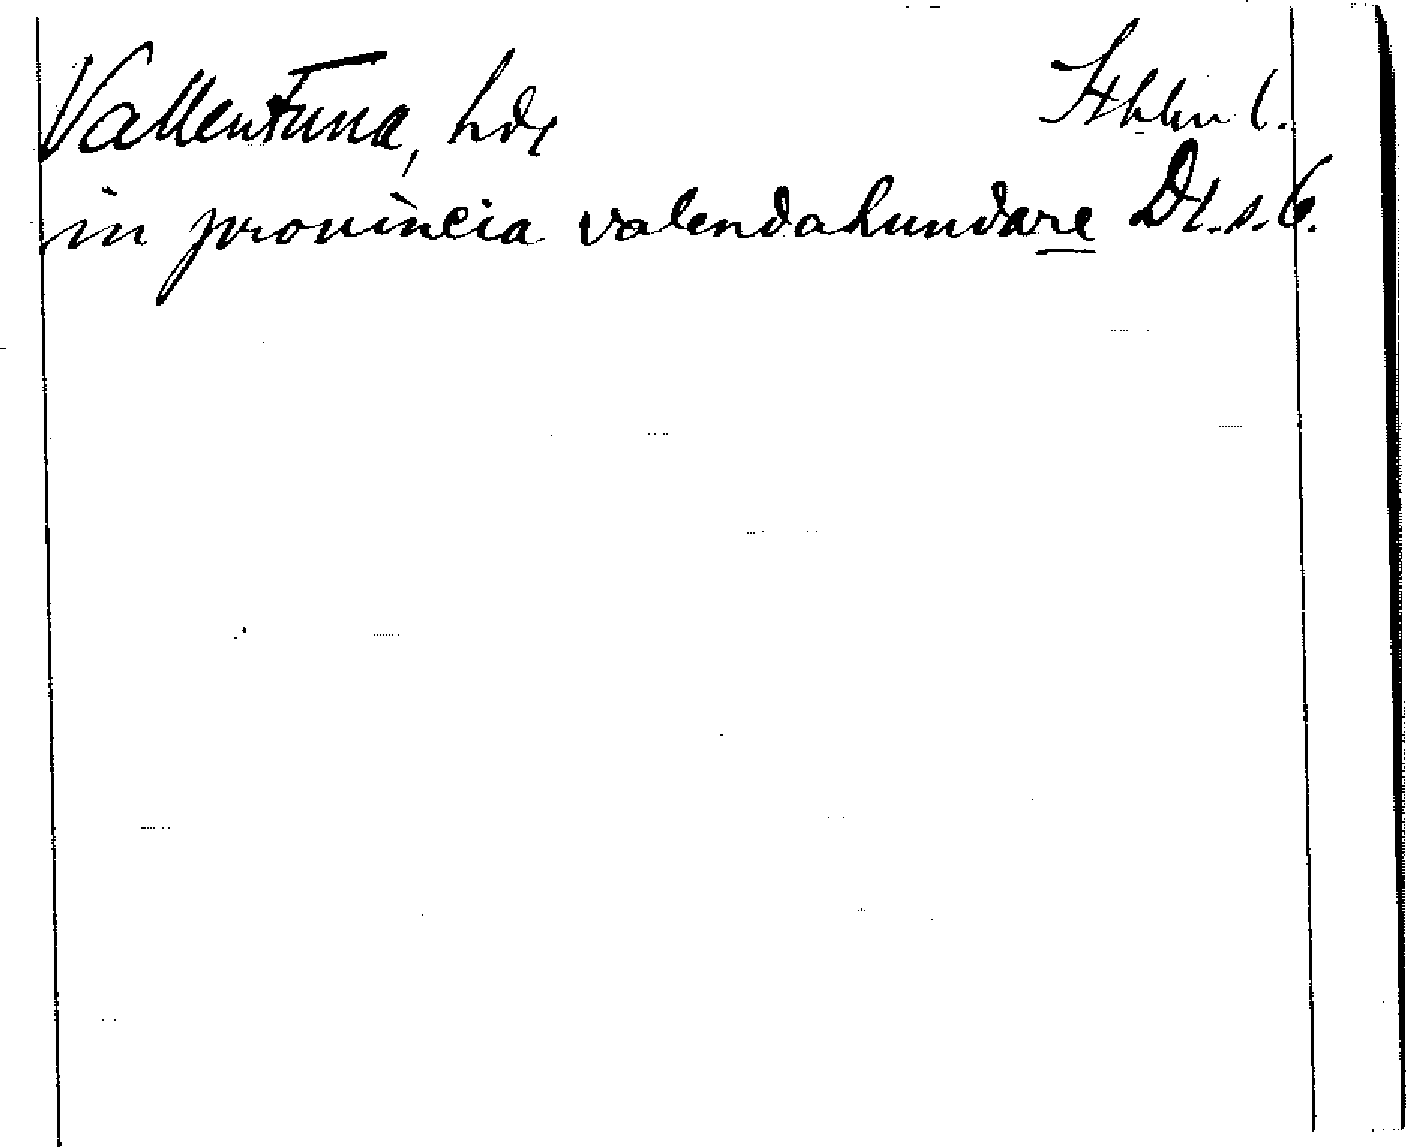 Vallentuna, hdr Sthlm l.
in provincia valendahundare Dl. s. 6.